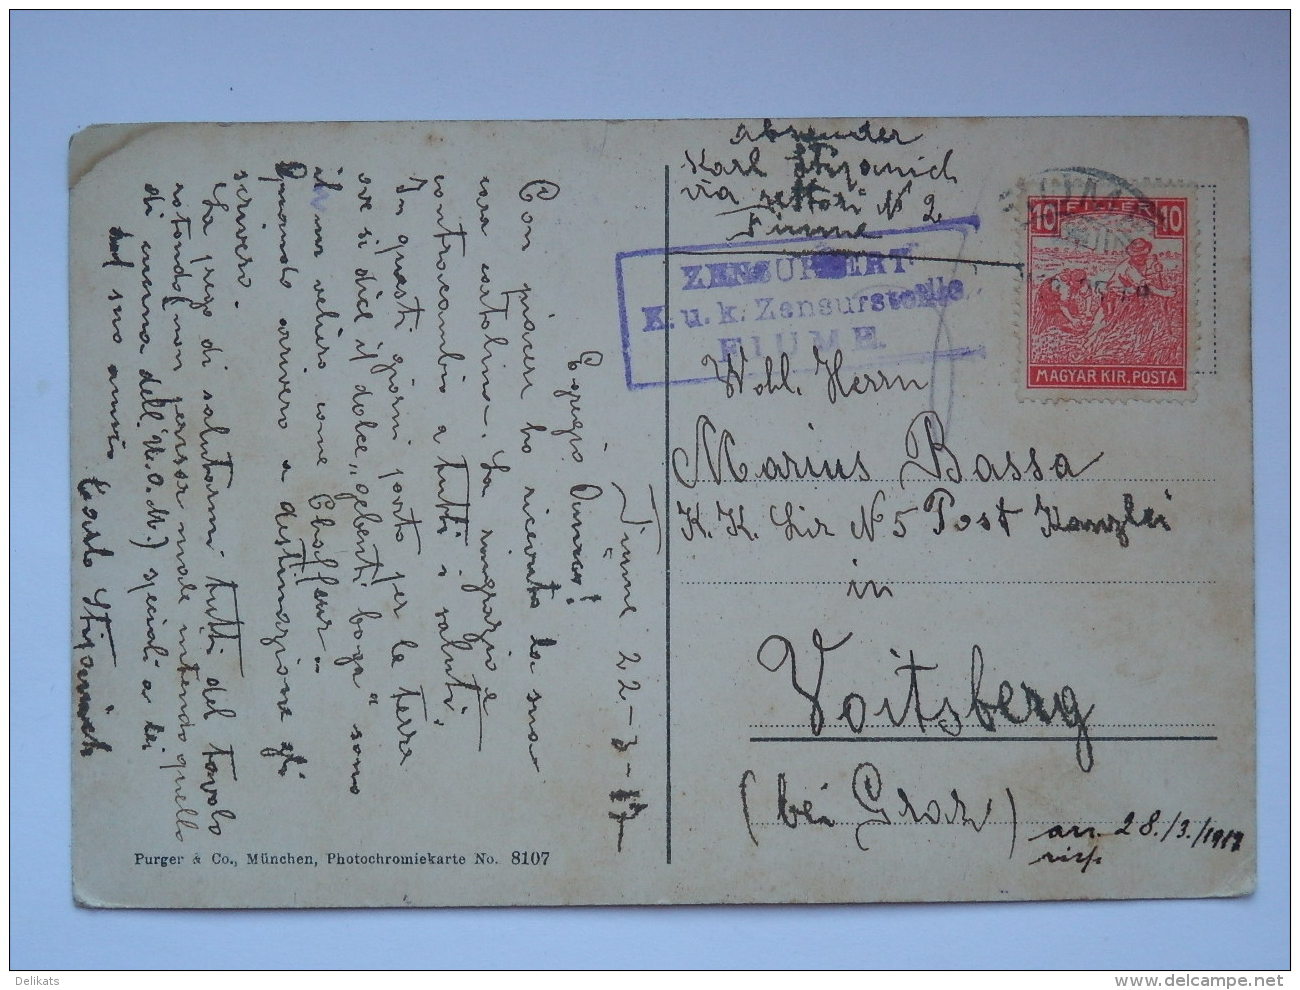 absender
Karl Stipanich
via rettori N 2
Fiume
10 FILLER 10
MAGYAR KIR. POSTA
ZENSURIERT
K. u. k. Zensurstelle
FIUME.
Wohl. Herrn
Marius Bassa
K. K. Lir N 5 Post Kanzlei
in
Voitsberg
(bei Graz)
arr. 28./3./1917
risp.
Fiume 22-3-17
Egregio Amico!
Con piacere ho ricevuto la sua
cartolina. La ringrazio e
contracambio a tutti i saluti.
In questi giorni parto per la terra
ove si dice il dolce „gebenti boga" sono
come Chaffeur.
Quando arrivero a destinazione gli
scrivero.
La prego di salutarmi tutti del tavolo
rotondo (non pensar male intendo quello
di mensa dell' U.O.M.) speciali a lei
suo amico Carlo Stipanich
Purger & Co., München, Photochromiekarte No. 8107
Delikats
www.delcampe.net